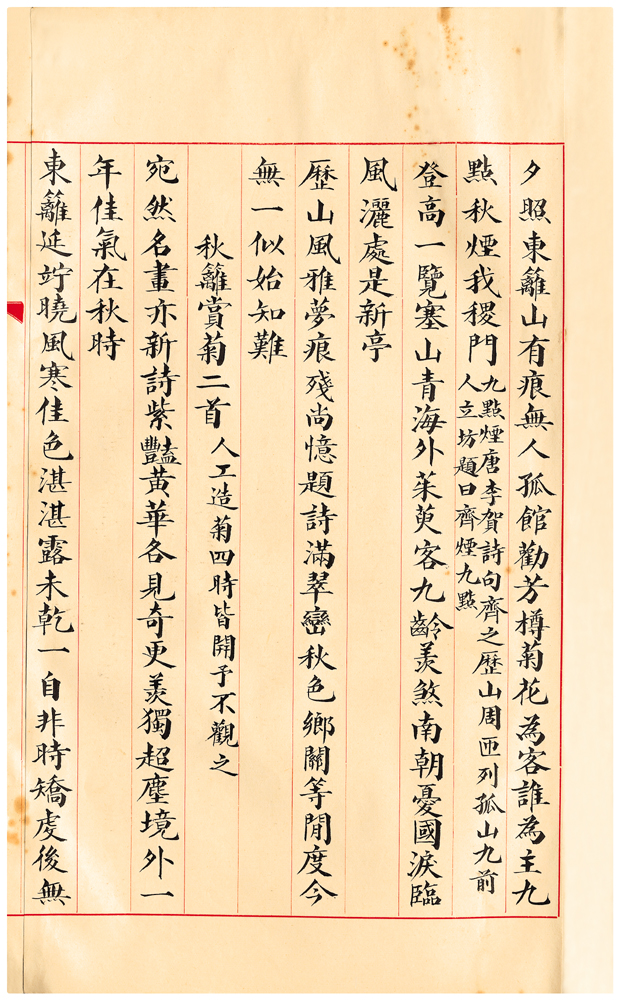 夕照東籬山有痕無人孤館勸芳樽菊花為客誰為主九
點秋煙我稷門九點煙唐李賀詩句齊之歷山周匝列孤山九前
人立坊題曰齊煙九點
登高一覽塞山青海外茱萸客九齡羨煞南朝憂國淚臨
風灑處是新亭
歷山風雅夢痕殘尚憶題詩滿翠巒秋色鄉關等閒度今
無一似始知難
秋籬賞菊二首人工造菊四時皆開予不觀之
宛然名畫亦新詩紫豔黃華各見奇更羨獨超塵境外一
年佳氣在秋時
東籬延竚曉風寒佳色湛湛露未乾一自非時矯虔後無